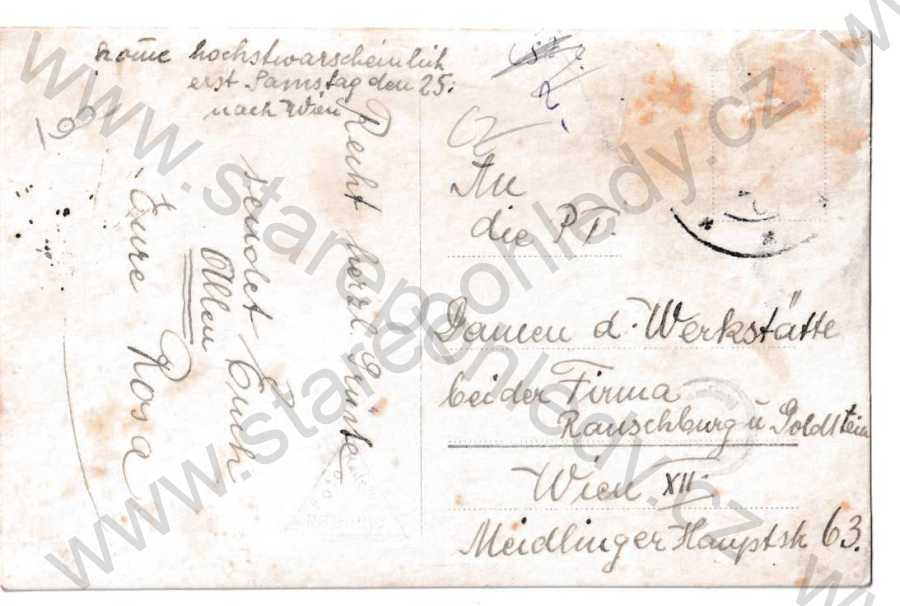 kom̄e hochstwarscheinlich
erst Samstag den 25.
nach Wien
Recht herzl. Grüße
sendet Euch
Allen
Eure Rosa
An
die P.T.
Damen d. Werkstätte
bei der Firma
Rauschburg u Goldstein
Wien XII.
Meidlinger Hauptstr 63.
www.starepohledy.cz
www.starepohledy.cz